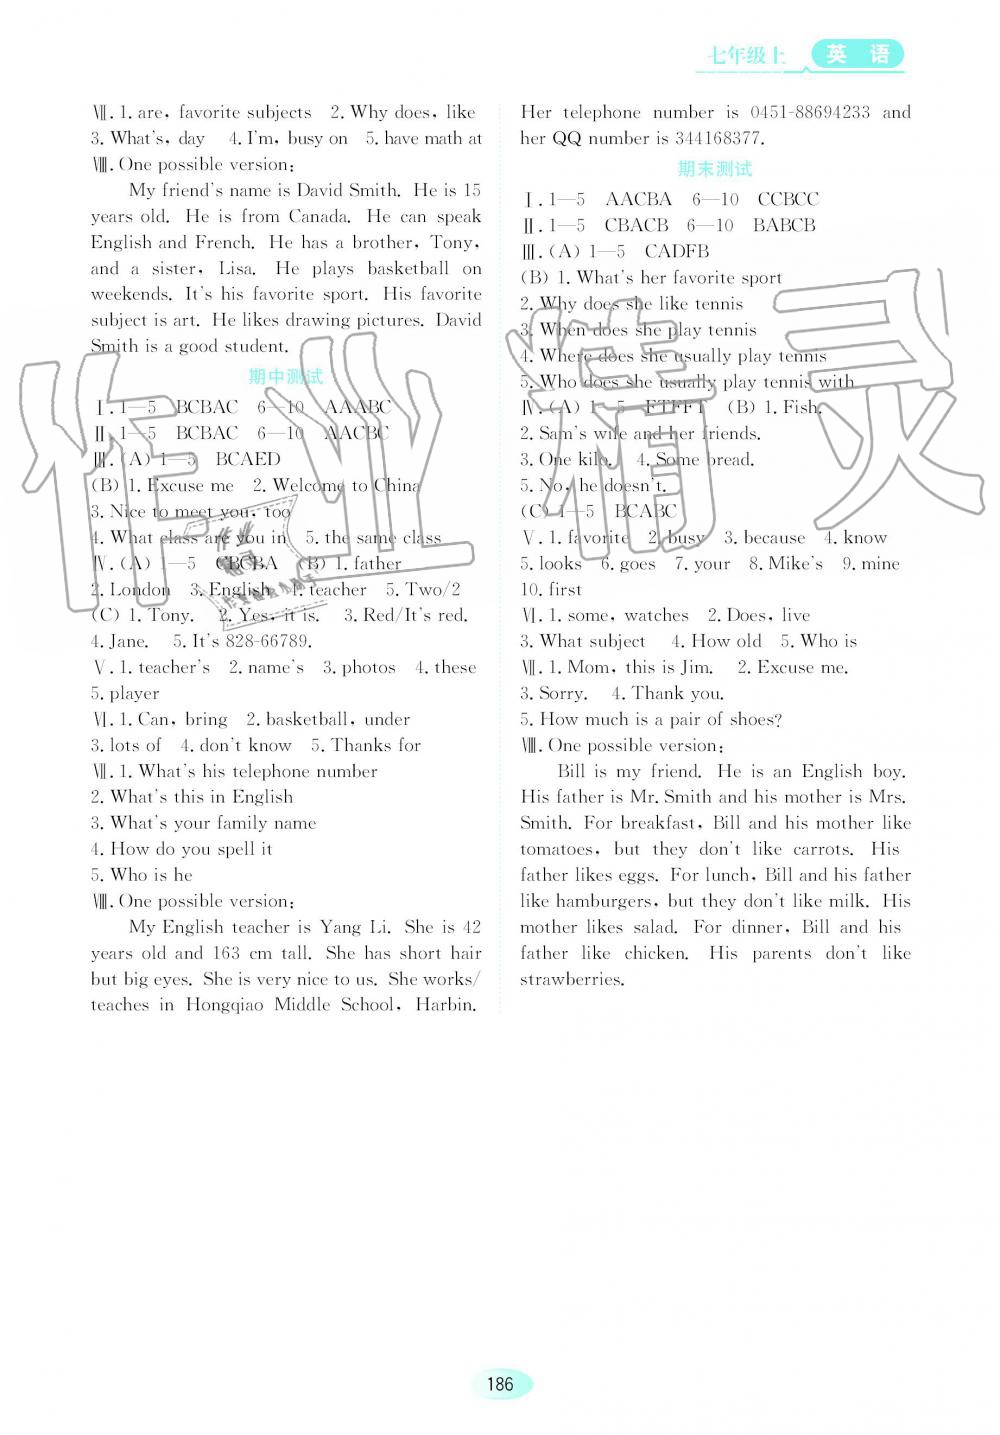 七年级上 英 语
Ⅶ. 1. are, favorite subjects 2. Why does, like
3. What's, day 4. I'm, busy on 5. have math at
Ⅷ. One possible version:
My friend's name is David Smith. He is 15
years old. He is from Canada. He can speak
English and French. He has a brother, Tony,
and a sister, Lisa. He plays basketball on
weekends. It's his favorite sport. His favorite
subject is art. He likes drawing pictures. David
Smith is a good student.
期中测试
Ⅰ. 1—5 BCBAC 6—10 AAABC
Ⅱ. 1—5 BCBAC 6—10 AACBC
Ⅲ. (A) 1—5 BCAED
(B) 1. Excuse me 2. Welcome to China
3. Nice to meet you, too
4. What class are you in 5. the same class
Ⅳ. (A) 1—5 CBCBA (B) 1. father
2. London 3. English 4. teacher 5. Two/2
(C) 1. Tony. 2. Yes, it is. 3. Red/It's red.
4. Jane. 5. It's 828-66789.
Ⅴ. 1. teacher's 2. name's 3. photos 4. these
5. player
Ⅵ. 1. Can, bring 2. basketball, under
3. lots of 4. don't know 5. Thanks for
Ⅶ. 1. What's his telephone number
2. What's this in English
3. What's your family name
4. How do you spell it
5. Who is he
Ⅷ. One possible version:
My English teacher is Yang Li. She is 42
years old and 163 cm tall. She has short hair
but big eyes. She is very nice to us. She works/
teaches in Hongqiao Middle School, Harbin.
Her telephone number is 0451-88694233 and
her QQ number is 344168377.
期末测试
Ⅰ. 1—5 AACBA 6—10 CCBCC
Ⅱ. 1—5 CBACB 6—10 BABCB
Ⅲ. (A) 1—5 CADFB
(B) 1. What's her favorite sport
2. Why does she like tennis
3. When does she play tennis
4. Where does she usually play tennis
5. Who does she usually play tennis with
Ⅳ. (A) 1—5 FTFFT (B) 1. Fish.
2. Sam's wife and her friends.
3. One kilo. 4. Some bread.
5. No, he doesn't.
(C) 1—5 BCABC
Ⅴ. 1. favorite 2. busy 3. because 4. know
5. looks 6. goes 7. your 8. Mike's 9. mine
10. first
Ⅵ. 1. some, watches 2. Does, live
3. What subject 4. How old 5. Who is
Ⅶ. 1. Mom, this is Jim. 2. Excuse me.
3. Sorry. 4. Thank you.
5. How much is a pair of shoes?
Ⅷ. One possible version:
Bill is my friend. He is an English boy.
His father is Mr. Smith and his mother is Mrs.
Smith. For breakfast, Bill and his mother like
tomatoes, but they don't like carrots. His
father likes eggs. For lunch, Bill and his father
like hamburgers, but they don't like milk. His
mother likes salad. For dinner, Bill and his
father like chicken. His parents don't like
strawberries.
作业精灵
186